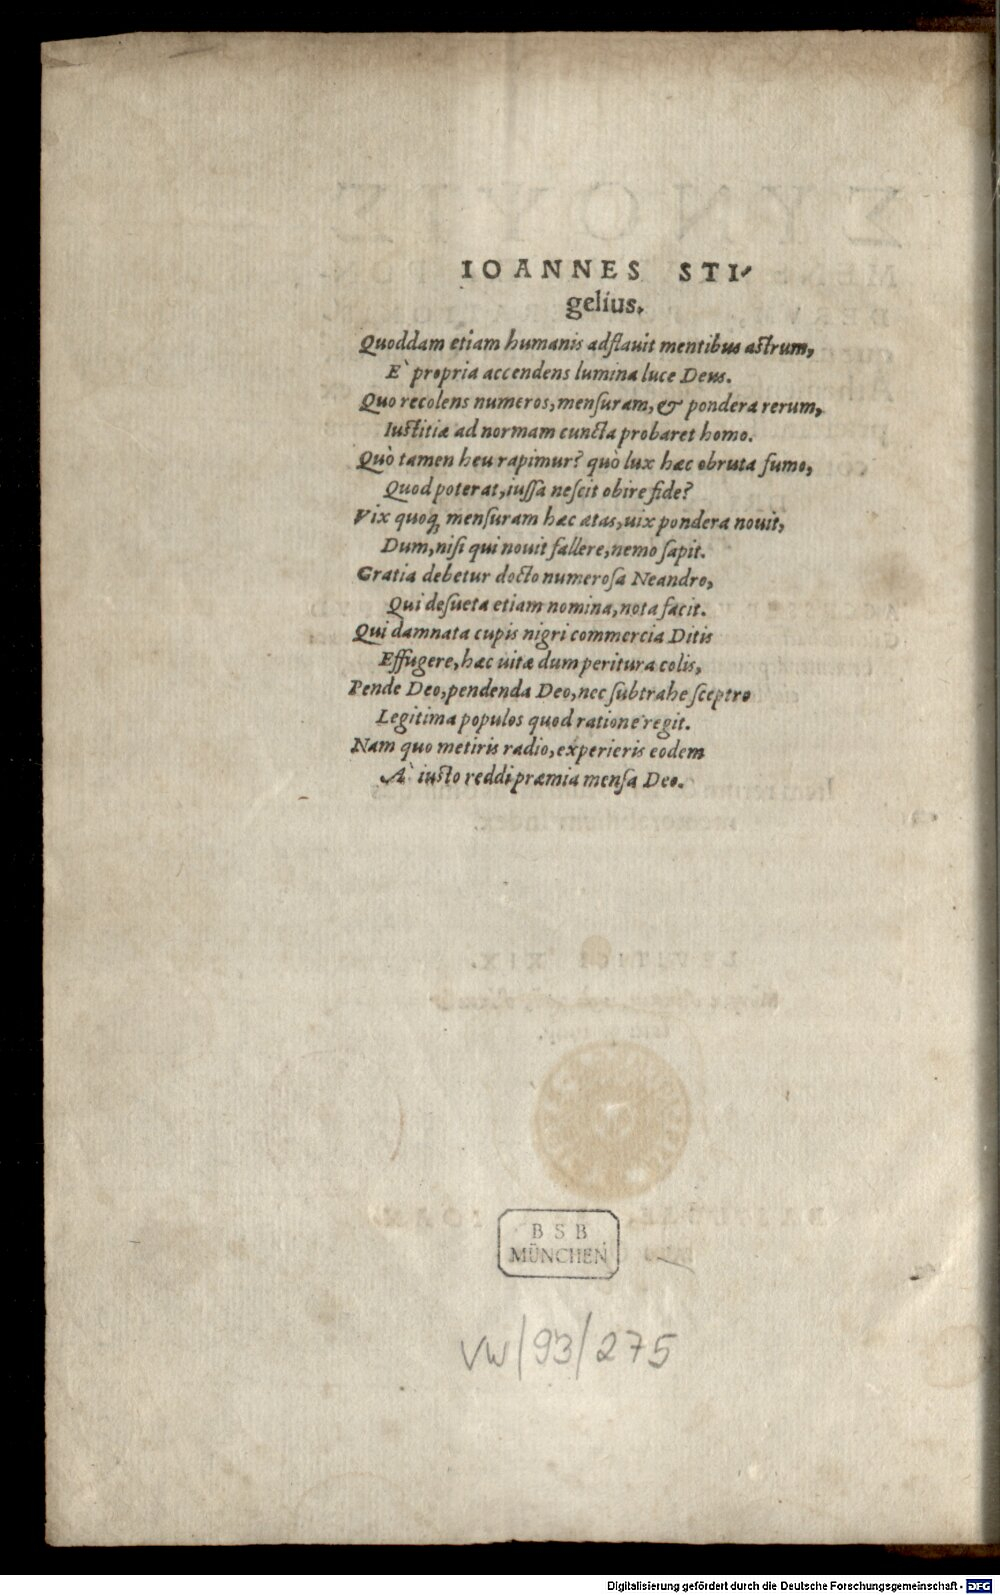 IOANNES STI-
gelius.
Quoddam etiam humanis adflauit mentibus astrum,
E` propria accendens lumina luce Deus.
Quo recolens numeros, mensuram, & pondera rerum,
Iustitiæ ad normam cuncta probaret homo.
Quò tamen heu rapimur? quò lux hæc obruta fumo,
Quod poterat, iussa nescit obire fide?
Vix quoq; mensuram hæc ætas, uix pondera nouit,
Dum, nisi qui nouit fallere, nemo sapit.
Gratia debetur docto numerosa Neandro,
Qui desueta etiam nomina, nota facit.
Qui damnata cupis nigri commercia Ditis
Effugere, hæc uitæ dum peritura colis,
Pende Deo, pendenda Deo, nec subtrahe sceptro
Legitima populos quod ratione regit.
Nam quo metiris radio, experieris eodem
A` iusto reddi præmia mensa Deo.
BSB
MÜNCHEN
VW/93/275
Digitalisierung gefördert durch die Deutsche Forschungsgemeinschaft - DFG